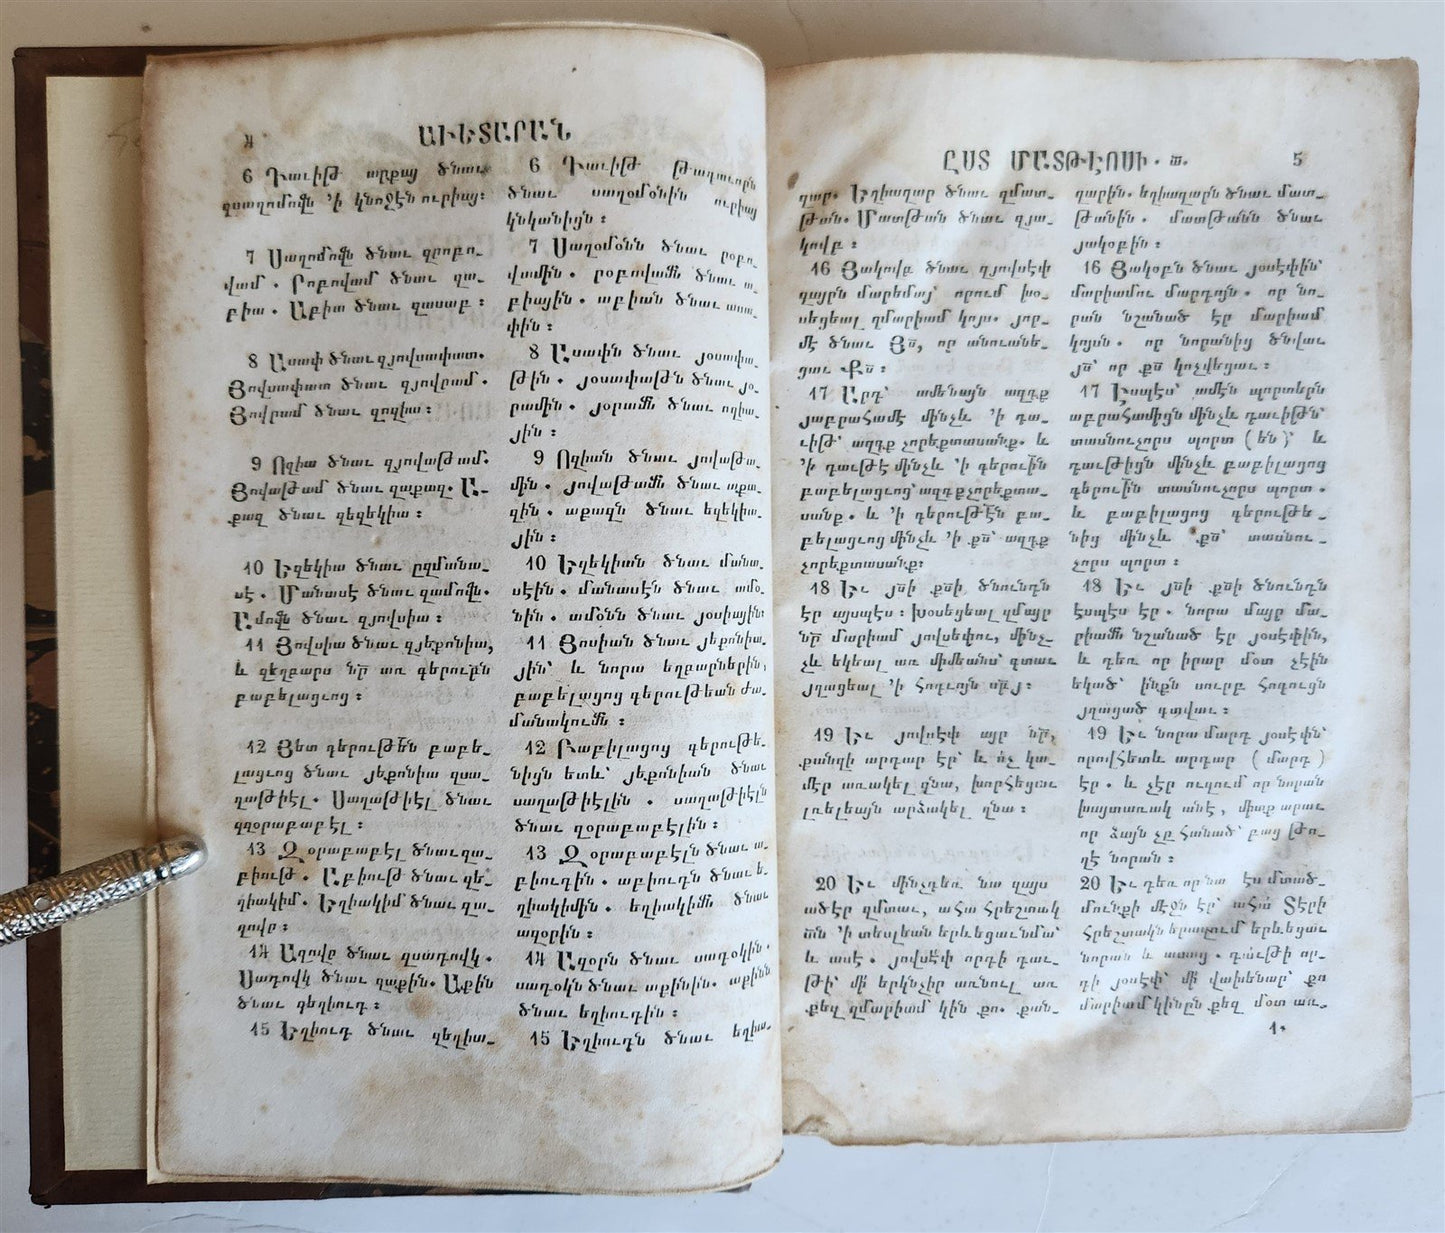 ԱՒԵՏԱՐԱՆ
6 Դաւիթ արքայ ծնաւ
զսաղոմովն 'ի կնոջէն ուրիայ։
7 Սաղոմովն ծնաւ զրոբո-
վամ. Րոբովամ ծնաւ զա-
բիա. Աբիա ծնաւ զասաբ։
8 Ասափ ծնաւ զյովսափատ.
Յովսափատ ծնաւ զյովրամ.
Յովրամ ծնաւ զոզիա։
9 Ոզիա ծնաւ զյովաթամ.
Յովաթամ ծնաւ զաքազ. Ա-
քազ ծնաւ զեզեկիա։
10 Եզեկիա ծնաւ ըզմանա-
սէ. Մանասէ ծնաւ զամովն.
Ամովն ծնաւ զյովսիա։
11 Յովսիա ծնաւ զյեքոնիա,
և զեղբարս նր առ գերութբն
բաբելացւոց։
12 Յետ գերութեն բաբե-
լացւոց ծնաւ յեքոնիա զսա-
ղաթիէլ. Սաղաթիէլ ծնաւ
զզօրաբաբէլ։
13 Զօրաբաբէլ ծնաւ զա-
բիութ. Աբիութ ծնաւ զե-
ղիակիմ. Եղիակիմ ծնաւ զա-
զովր։
14 Ազովր ծնաւ զսադովկ.
Սադովկ ծնաւ զաքին. Աքին
ծնաւ զեղիուդ։
15 Եղիուդ ծնաւ զեղիա-
6 Դաւիթ թագաւորն
ծնաւ սաղօմօնին ուրիայ
կնկանիցն։
7 Սաղօմօնն ծնաւ րօբօ-
վամին. րօբովամն ծնաւ ա-
բիային. աբիան ծնաւ ասա-
փին։
8 Ասափն ծնաւ յօսափա-
թին. յօսափաթն ծնաւ յօ-
րամին. յօրամն ծնաւ ոզիա-
յին։
9 Ոզիան ծնաւ յովաթա-
մին. յովաթամն ծնաւ աքա-
զին. աքազն ծնաւ եզեկիա-
յին։
10 Եզեկիան ծնաւ մանա-
սէին. մանասէն ծնաւ ամօ-
նին. ամօնն ծնաւ յօսիային։
11 Յօսիան ծնաւ յեքոնիա-
յին՝ և նորա եղբարներին,
բաբելացոց գերութեան ժա-
մանակումն։
12 Բաբիլացոց գերութե-
նիցն ետև՝ յեքոնիան ծնաւ
սաղաթիէլին. սաղաթիէլն
ծնաւ զօրաբաբէլին։
13 Զօրաբաբէլն ծնաւ ա-
բիուդին. աբիուդն ծնաւ ե-
ղիակիմին. եղիակիմն ծնաւ
ազօրին։
14 Ազօրն ծնաւ սադօկին.
սադօկն ծնաւ աքինին. աքինն
ծնաւ եղիուդին։
15 Եղիուդն ծնաւ եղիա-
ԸՍՏ ՄԱՏԹԷՈՍԻ. ա. 5
զար. Եղիազար ծնաւ զմատ-
թան. Մատթան ծնաւ զյա-
կովբ։
16 Յակովբ ծնաւ զյովսէփ
զայրն մարեմայ՝ որում խօ-
սեցեալ զմարիամ կոյս. յոր-
մէ ծնաւ Յս, որ անուանե-
ցաւ Քս։
17 Արդ՝ ամենայն ազգք
յաբրահամէ մինչև 'ի դա-
ւիթ՝ ազգք չորեքտասանք. և
'ի դաւթէ մինչև 'ի գերուին
բաբելացւոց՝ ազգք չորեքտա-
սանք. և 'ի գերութէն բա-
բելացւոց մինչև 'ի քս՝ ազգք
չորեքտասանք։
18 Եւ յսի քսի ծնունդն
էր այսպէս։ Խօսեցեալ զմայր
նր մարիամ յովսեփու, մինչ-
չև եկեալ առ միմեանս՝ գտաւ
յղացեալ 'ի Հոգւոյն սրբոյ.
19 Եւ յովսէփ այր նր,
քանզի արդար էր՝ և ոչ կա-
մէր առակել զնա, խորհեցաւ
լռելեայն արձակել զնա։
20 Եւ մինչդեռ նա զայս
ածէր զմտաւ, ահա հրեշտակ
տն 'ի տեսլեան երևեցաւ նմա՝
և ասէ. յովսէփ որդի դաւ-
թի՝ մի երկնչիր առնուլ առ
քեզ զմարիամ կին քո. քան-
զարին. եղիազարն ծնաւ մատ-
թանին. մատթանն ծնաւ
յակօբին։
16 Յակօբն ծնաւ յօսէփին՝
մարիամու մարդոյն. որ նո-
րան նշանած էր մարիամ
կոյսն. որ նորանից ծնվաւ
յս՝ որ քս կոչվեցաւ։
17 Էսպէս՝ ամէն պորտերն
աբրահամիցն մինչև դաւիթն՝
տասնուչորս պորտ (են)՝ և
դաւթիցն մինչև բաբիլացոց
գերուին տասնուչորս պորտ.
և բաբիլացոց գերութե-
նից մինչև քս՝ տասնու-
չորս պորտ։
18 Եւ յսի քսի ծնունդն
էսպէս էր. նորա մայր մա-
րիամն նշանած էր յօսէփին,
և դեռ որ իրար մօտ չէին
եկած՝ ինքն սուրբ հոգուցն
յղացած գտվաւ։
19 Եւ նորա մարդ յօսէփն՝
որովհետև արդար (մարդ)
էր. և չէր ուզում որ նորան
խայտառակ անէ, միտք արաւ
որ ձայն չը հանած՝ բաց թո-
ղէ նորան։
20 Եւ դեռ որ նա էս մտած-
մունքի մէջն էր՝ ահա Տէրի
հրեշտակն երազում երևեցաւ
նորան և ասաց. դաւթի որ-
դի յօսէփ՝ մի վախենար՝ քո
մարիամ կինըն քեզ մօտ առ-
1.